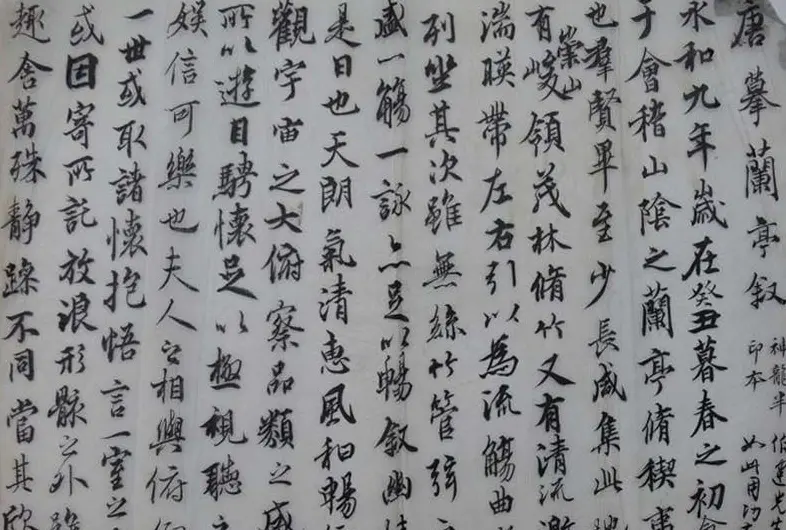 唐摹蘭亭叙
神龍半
印本
永和九年歲在癸丑暮春之初會
于會稽山陰之蘭亭脩稧事
也羣賢畢至少長咸集此地
有崇山峻領茂林脩竹又有清流激
湍暎帶左右引以為流觴曲
列坐其次雖無絲竹管弦之
盛一觴一詠亦足以暢叙幽情
是日也天朗氣清惠風和暢
觀宇宙之大俯察品類之盛
所以遊目騁懷足以極視聽之
娛信可樂也夫人之相與俯仰
一世或取諸懷抱悟言一室之
或因寄所託放浪形骸之外雖
趣舍萬殊靜躁不同當其欣